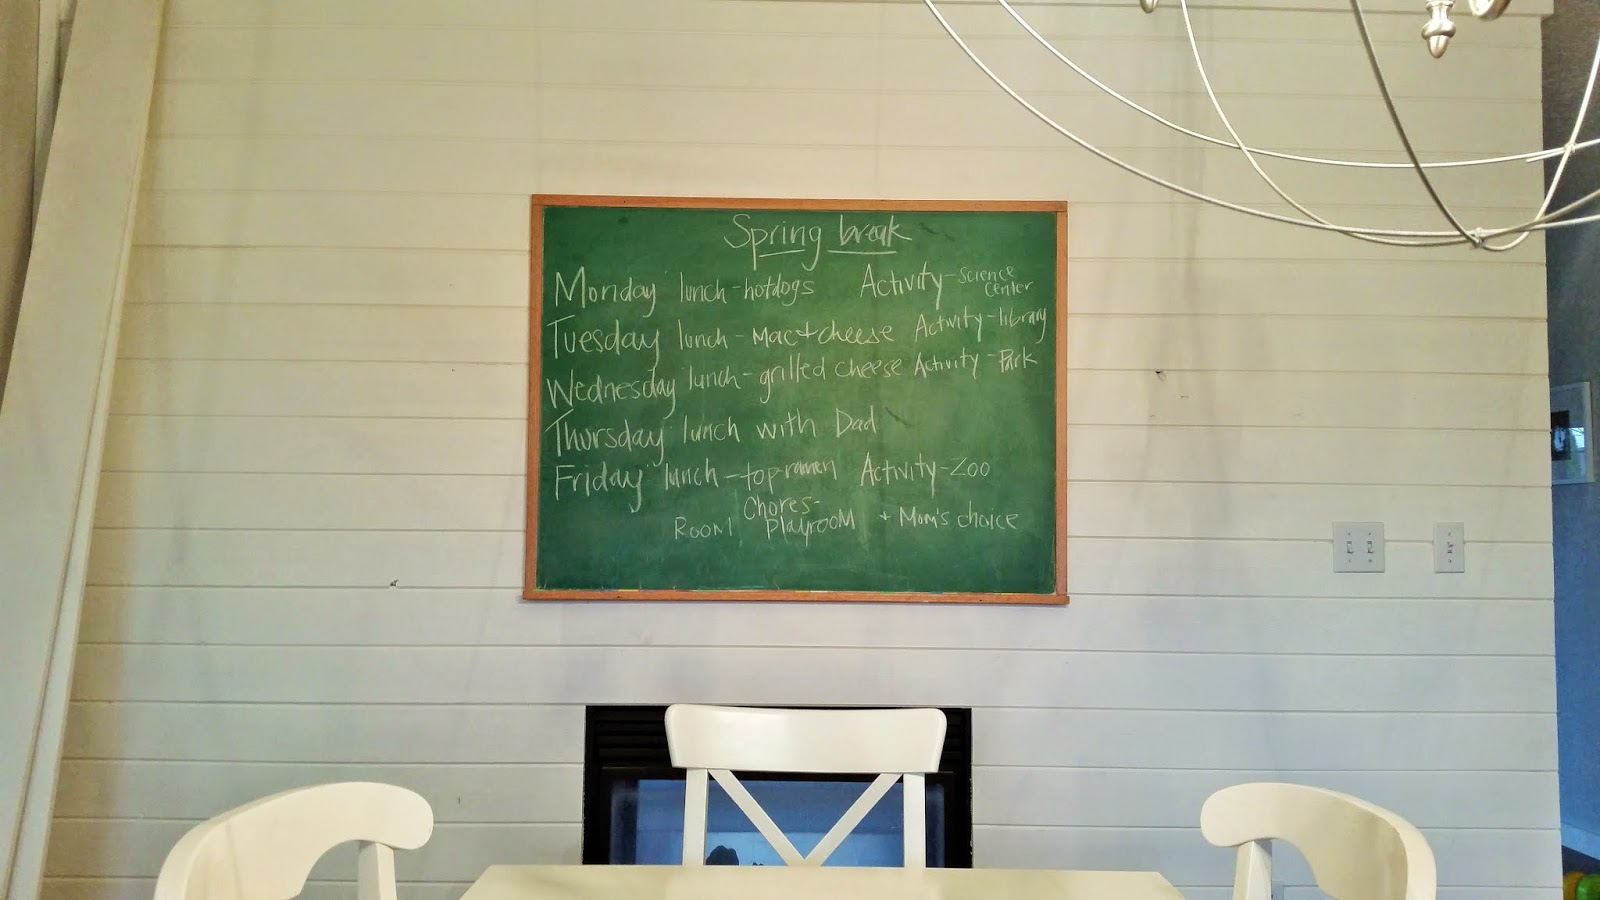 Spring break
Monday lunch-hotdogs Activity-science center
Tuesday lunch-Mac+cheese Activity-library
Wednesday lunch-grilled cheese Activity-Park
Thursday lunch with Dad
Friday lunch-topramen Activity-Zoo
Chores-
Room Playroom + Mom's choice